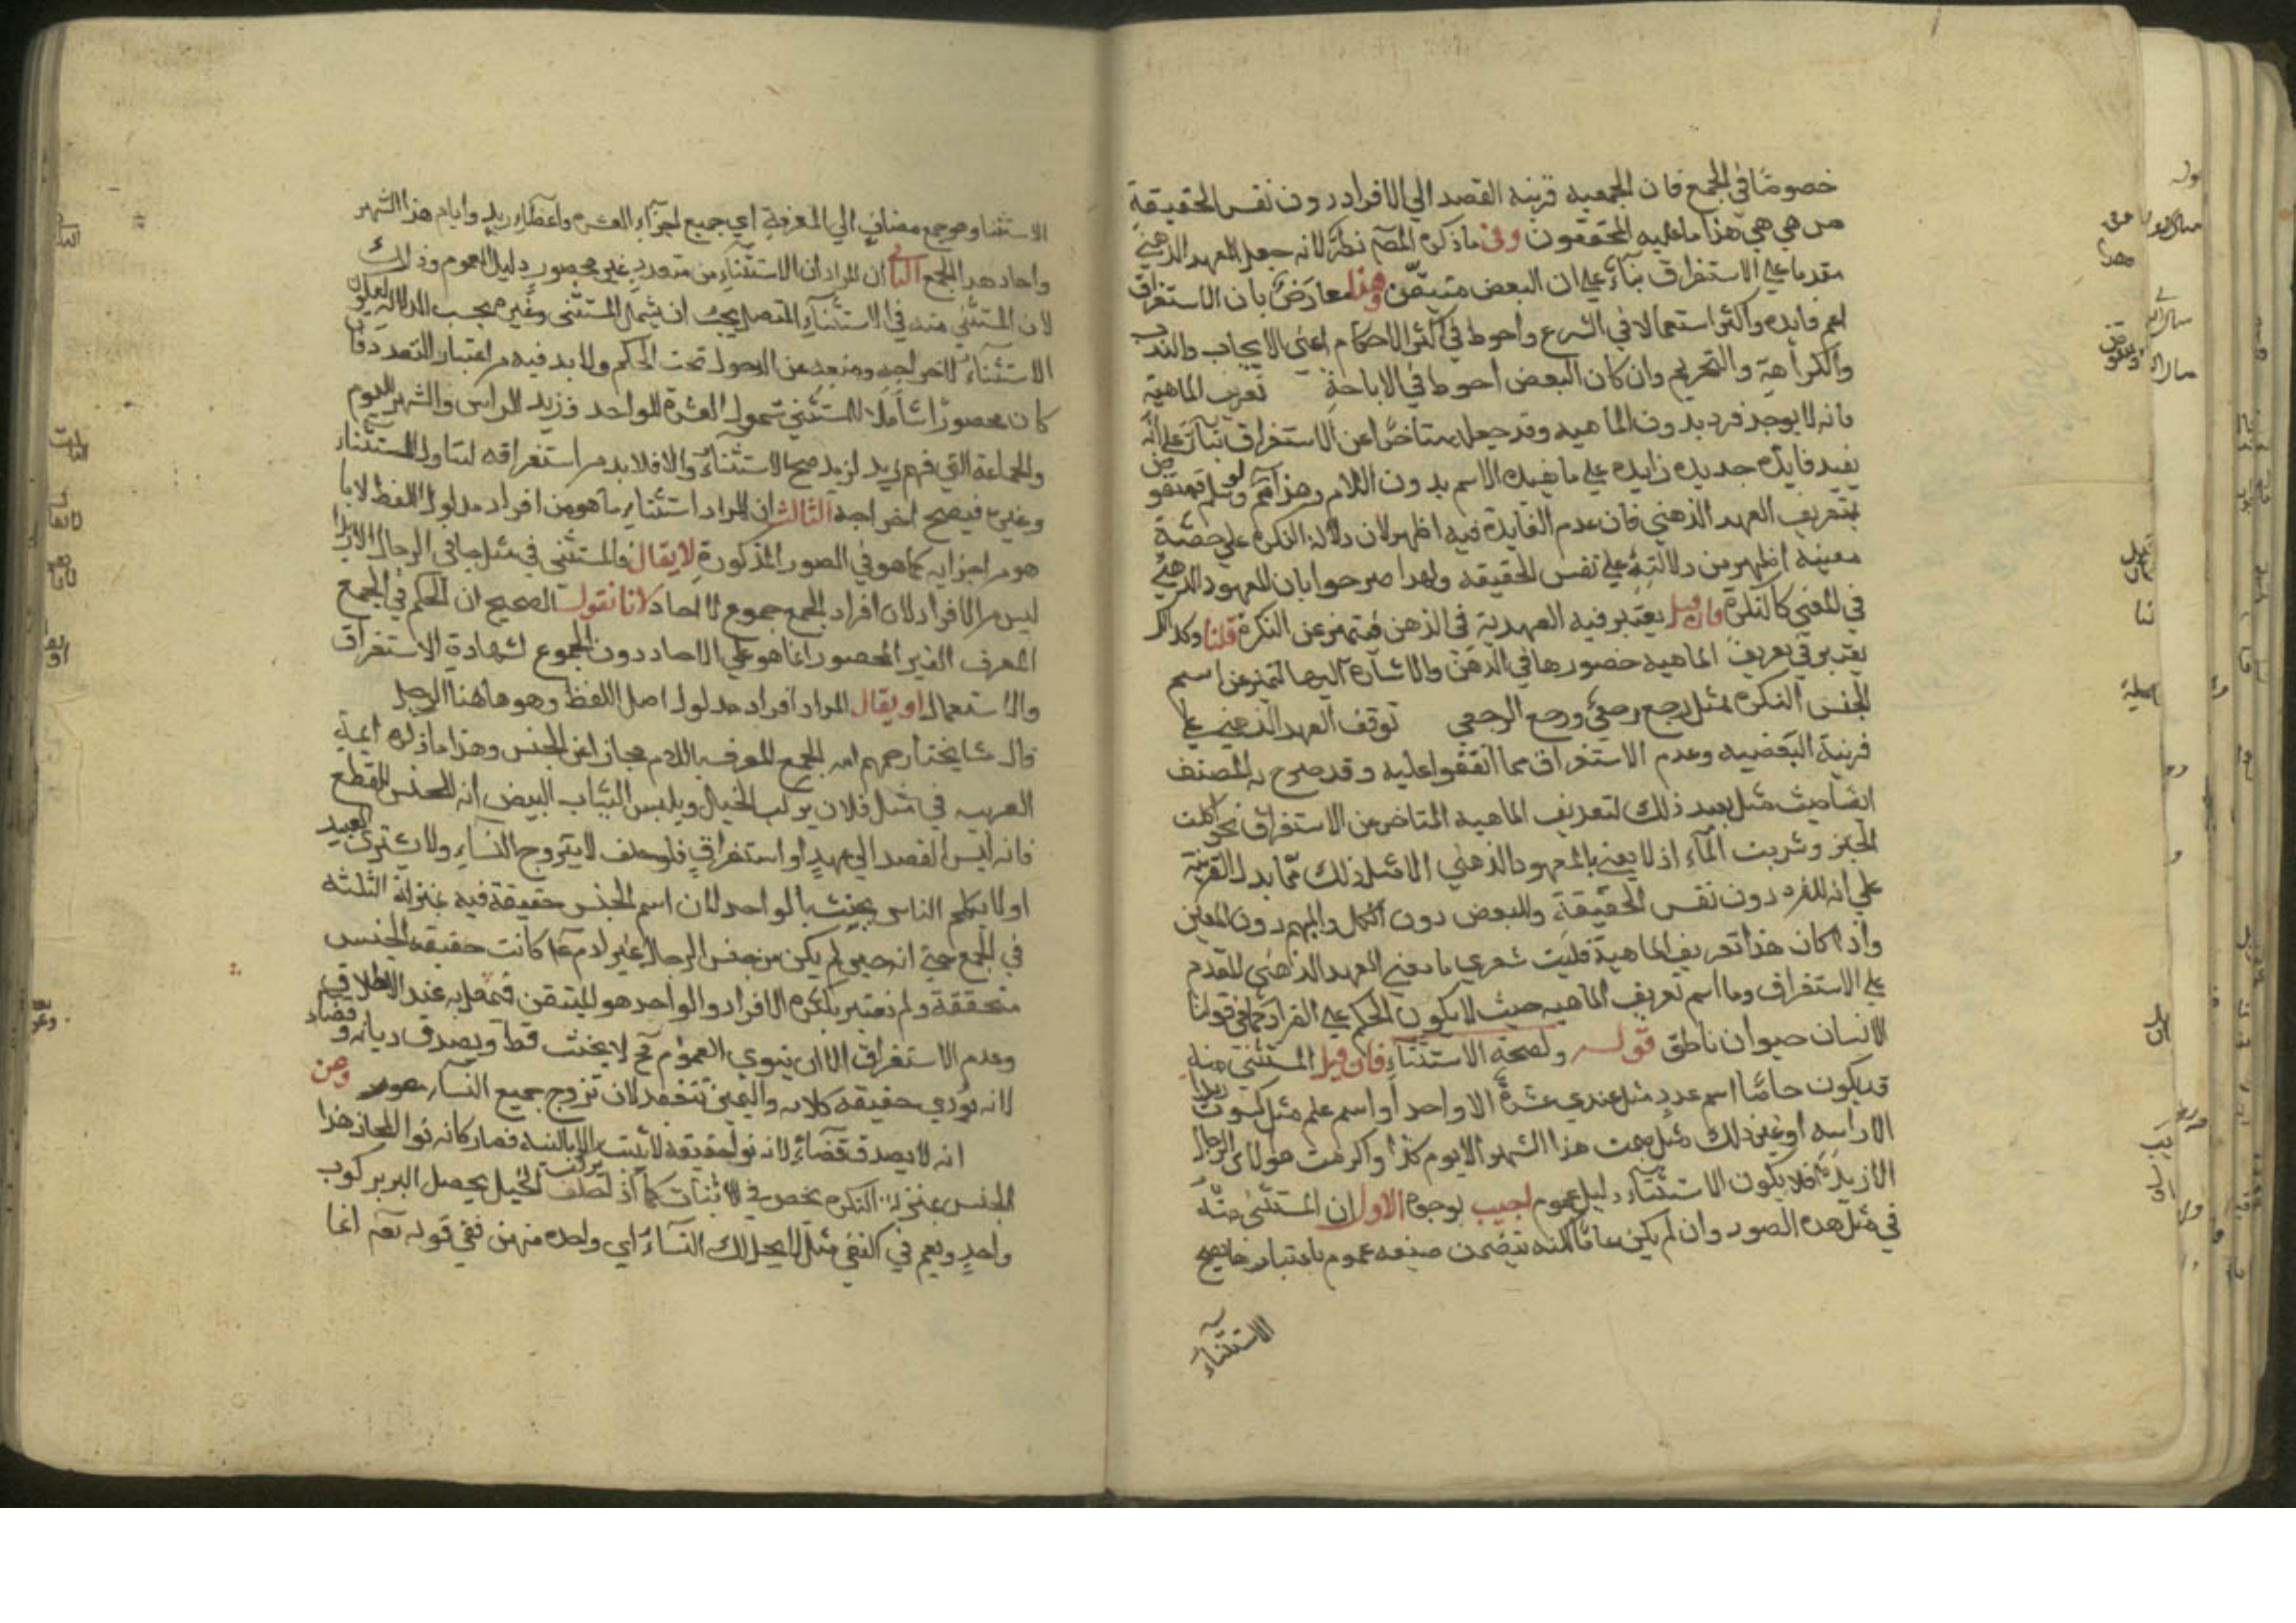 خصوصًا في الجمع فان الجمعيه قرينه القصد الي الافراد دون نفس الحقيقة
من هي هي هذا ما عليه المحققون وفي ما ذكره المصّ نظر لانه جعل العهد الذهني
مقدما علي الاستغراق بناءً علي ان البعض متيقّن وهذا معارَضٌ بان الاستغراق
اعم فايده واكثر استعمالا في الشرع واحوط في اكثر الاحكام اعني الايجاب والندب
والكراهة والتحريم وان كان البعض احوط في الاباحة تعريف الماهية
فانه لا يوجد فرد بدون الماهيه وقد جعله متاخرًا عن الاستغراق بناءً علي انّه
يفيد فايدة جديده زايده علي ما يفيده الاسم بدون اللام وهذا ممّ ولو سلم فمنقوض
بتعريف العهد الذهني فان عدم الفايدة فيه اظهر لان دلالة النكره علي حصّة
معينه اظهر من دلالتها علي نفس الحقيقه ولهذا صرحوا بان المعهود الذهني
في المعني كالنكرة وان قيل يعتبر فيه العهدية في الذهن فيتميز عن النكرة قلنا وكذلك
يعتبر في تعريف الماهيه حضورها في الذهن والاشارة اليها لتميز عن اسم
الجنس النكره مثل رجع رجعي ورجع الرجعي توقف العهد الذهني علي
قرينة البعضيه وعدم الاستغراق مما اتفقوا عليه وقد صرح به المصنف
ايضا حيث مثل بعيد ذلك لتعريف الماهيه المتاخر عن الاستغراق بنحو اكلت
الخبز وشربت المآء اذ لا يعني بالمعهود الذهني الا مثل ذلك مما يدل القرينة
علي انه للفرد دون نفس الحقيقة وللبعض دون الكل والمبهم دون المعين
واذا كان هذا تعريف الماهية فليت شعري ما معني العهد الذهني المقدم
علي الاستغراق وما اسم تعريف الماهيه حيث لا يكون الحكم علي الفراد كما في قولنا
الانسان حيوان ناطق قوله ولصحة الاستثناء فان قيل المستثني منه
قد يكون خاصًّا اسم عدد مثل عندي عشرة الا واحد أو اسم علم مثل كسوت زيدا
الا راسه او غير ذلك مثل صمت هذا الشهر الا يوم كذا واكرمت هولاء الرجال
الا زيدًا فلا يكون الاستثناء دليل عموم اجيب بوجوه الاول ان المستثني منه
في مثل هذه الصور وان لم يكن عامًّا لكنه يتضمن صيغه عموم باعتبارها يصح
الاستثناء
الاستثنا وهو جمع مضاف الي المعرفة اي جميع اجزآء العشره واعضاء زيد وايام هذا الشهر
واحاد هذا الجمع الثاني ان المراد ان الاستثناء من متعدد غير محصور دليل العموم وذلك
لان المستثني منه في الاستثناء المتصل يجب ان يشمل المستثني وغيره بحسب الدلالة ليكون
الاستثناء لاخراجه ومنعه عن الدخول تحت الحكم ولا بد فيه من اعتبار التعدد فان
كان محصورًا شاملا للمستثني شمول العشرة للواحد وزيد للراس والشهر لليوم
والجماعة التي فيهم زيد لزيد صح الاستثناء والا فلا بد من استغراقه ليتناول المستثناء
وغيره فيصح اخراجه الثالث ان المراد استثناء ما هو من افراد مدلول اللفظ لا ما
هو من اجزايه كما هو في الصور المذكورة لا يقال فالمستثني في مثل جاني الرجال الا زيدا
ليس من الافراد لان افراد الجمع جموع لا احاد لانا نقول الصحيح ان الحكم في الجمع
المعرف الغير المحصور انما هو علي الاحاد دون الجموع لشهادة الاستغراق
والاستعمال او يقال المراد افراد مدلول اصل اللفظ وهو هاهنا الرجل
قال مشايخنا رحمهم الله الجمع المعرف باللام مجاز عن الجنس وهذا ما ذكره ايمة
العربيه في مثل فلان يركب الخيل ويلبس الثياب البيض انه للجنس للقطع
فانه ليس القصد الي عهدٍ او استغراقٍ فلو حلف لا يتزوج النسآء ولا يشتري العبيد
او لا يكلم الناس يحنث بالواحد لان اسم الجنس حقيقة فيه بمنزلة الثلثه
في الجمع حتي انه حين لم يكن من جنس الرجال غير ادم عم كانت حقيقه الجنس
متحققة ولم تعتبر بكثره الافراد والواحد هو المتيقن فيعمل به عند الاطلاق
وعدم الاستغراق الا ان ينوي العموم فح لا يحنث قط ويصدق ديانه وقضاء
لانه نوي حقيقه كلامه واليمين تنعقد لان تزوج جميع النساء متصور وعن
انه لا يصدق قضآءً لانه نوي حقيقة لا يثبت الا بالنيه فصار كانه نوا المجاز هذا
الجنس بمنزلة النكره يخص في الاثبات كما اذا حلف يركب الخيل يحصل البر بركوب
واحدٍ ويعم في النفي مثل لا يحل لك النسآء اي واحده منهن ففي قوله تعم انما